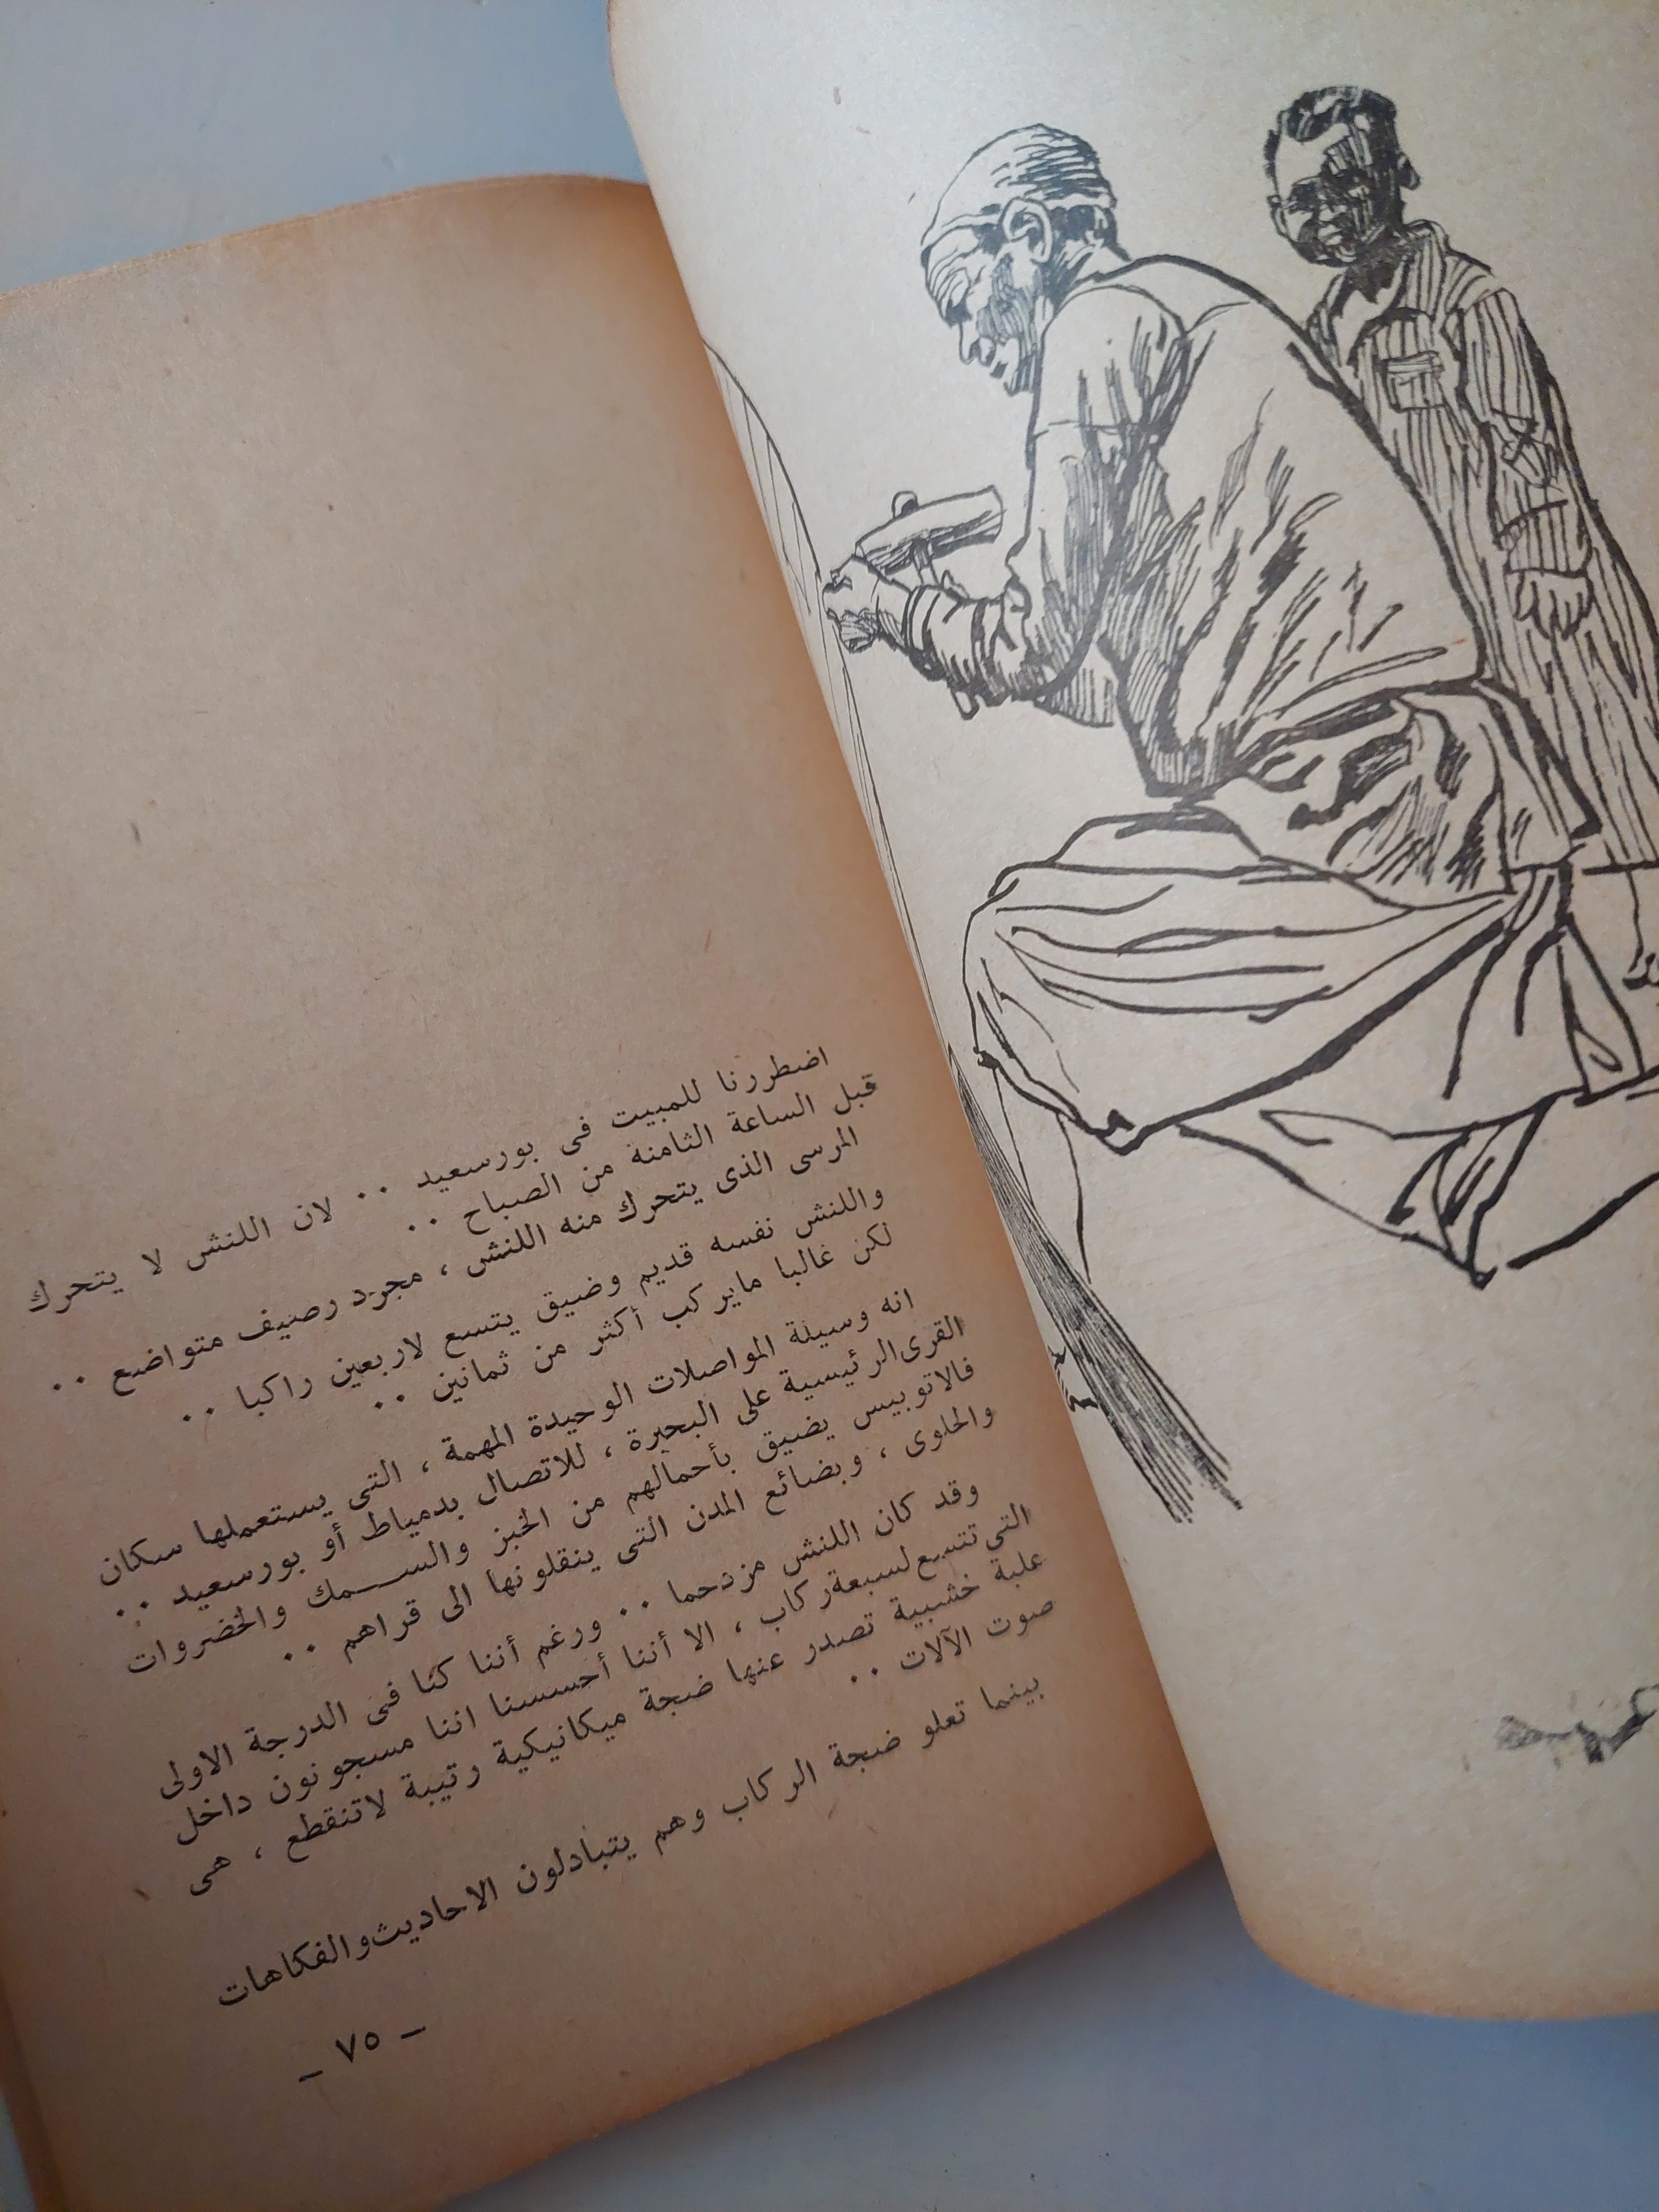 اضطررنا للمبيت فى بورسعيد ٠٠ لان اللنش لا يتحرك
قبل الساعة الثامنة من الصباح ٠٠
المرسى الذى يتحرك منه اللنش ، مجرد رصيف متواضع ٠٠
واللنش نفسه قديم وضيق يتسع لاربعين راكبا ٠٠
لكن غالبا مايركب أكثر من ثمانين ٠٠
انه وسيلة المواصلات الوحيدة المهمة ، التى يستعملها سكان
القرى الرئيسية على البحيرة ، للاتصال بدمياط أو بورسعيد ٠٠
فالاتوبيس يضيق بأحمالهم من الخبز والســـمك والخضروات
والحلوى ، وبضائع المدن التى ينقلونها الى قراهم ٠٠
وقد كان اللنش مزدحما ٠٠ ورغم أننا كنا فى الدرجة الاولى
التى تتسع لسبعة ركاب ، الا أننا أحسسنا اننا مسجونون داخل
علبة خشبية تصدر عنها ضجة ميكانيكية رتيبة لاتنقطع ، هى
صوت الآلات ٠٠
بينما تعلو ضجة الركاب وهم يتبادلون الاحاديث والفكاهات
– ٧٥ –